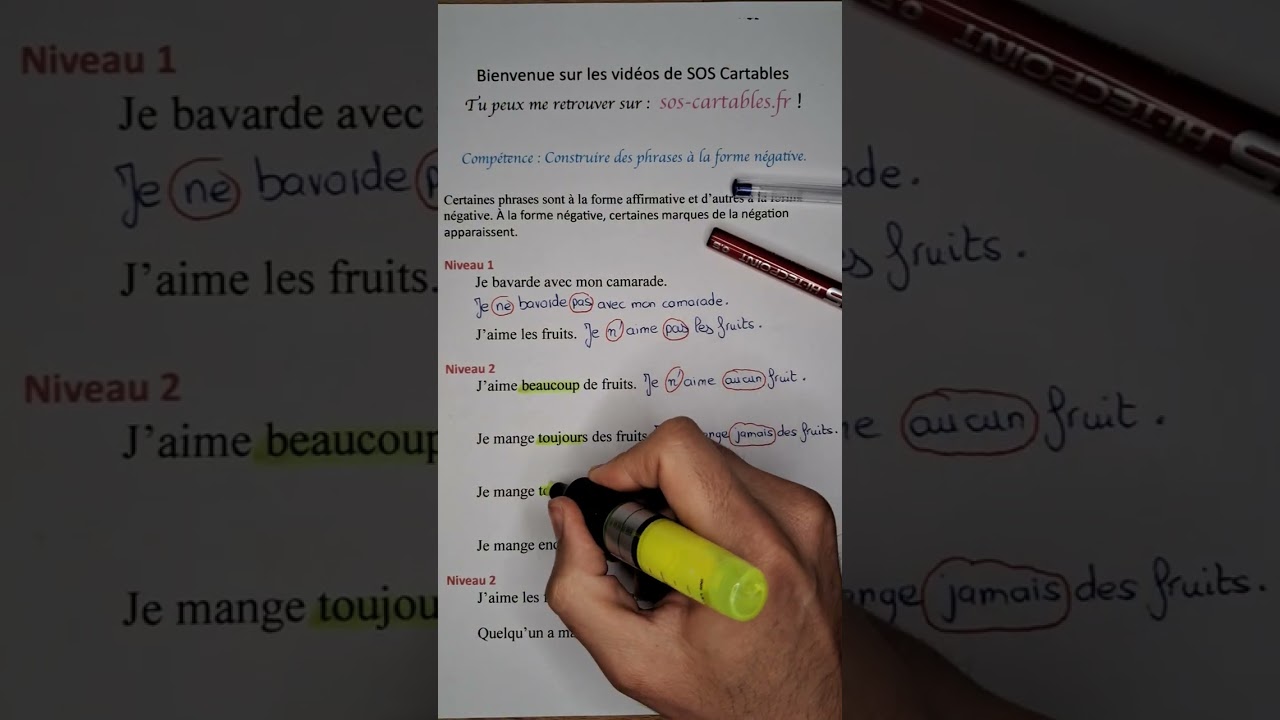 Bienvenue sur les vidéos de SOS Cartables
Tu peux me retrouver sur : sos-cartables.fr !
Compétence : Construire des phrases à la forme négative.
Certaines phrases sont à la forme affirmative et d'autres à la forme
négative. À la forme négative, certaines marques de la négation
apparaissent.
Niveau 1
Je bavarde avec mon camarade.
Je ne bavarde pas avec mon camarade.
J'aime les fruits. Je n'aime pas les fruits.
Niveau 2
J'aime beaucoup de fruits. Je n'aime aucun fruit.
Je mange toujours des fruits. jamais des fruits.
Je mange
Je mange
Niveau 2
J'aime les
Quelqu'un a
HI-TECPOINT
Niveau 1
Je bavarde avec
Je ne bavarde
J'aime les fruits.
Niveau 2
J'aime beaucoup
Je mange
fruits.
aucun fruit.
jamais des fruits.
HI-TECPOINT